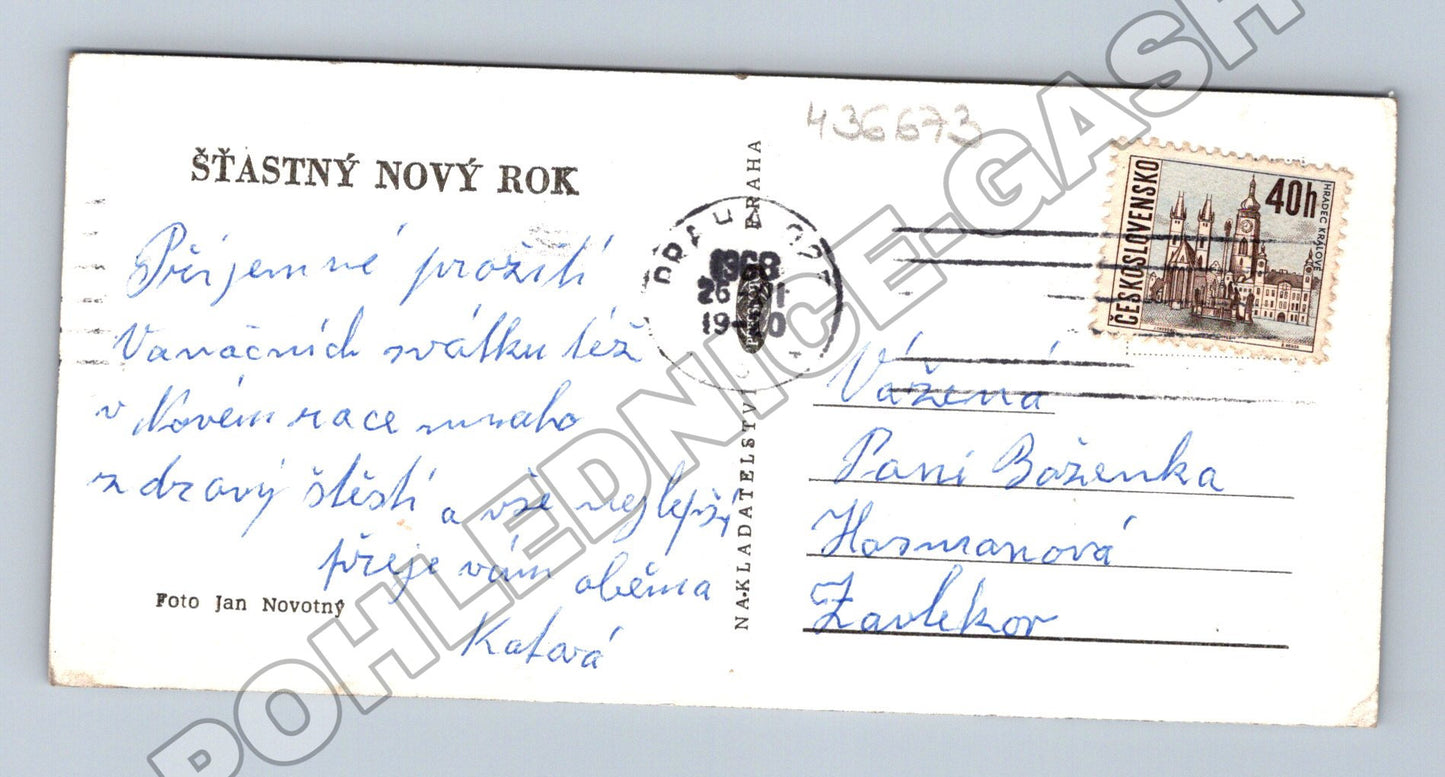 436673
ŠŤASTNÝ NOVÝ ROK
Příjemné prožití
Vanačních svátku též
v Novém race mnaho
zdravý štěstí a vše nejlepší
přeje vám oběma
Foto Jan Novotný
NAKLADATELSTVÍ
PRAHA
PRAHA
1968
26
19-20
ČESKOSLOVENSKO
40h
HRADEC KRÁLOVÉ
Vážená
Paní Boženka
Hosmanová
POHLEDNICE-GASH